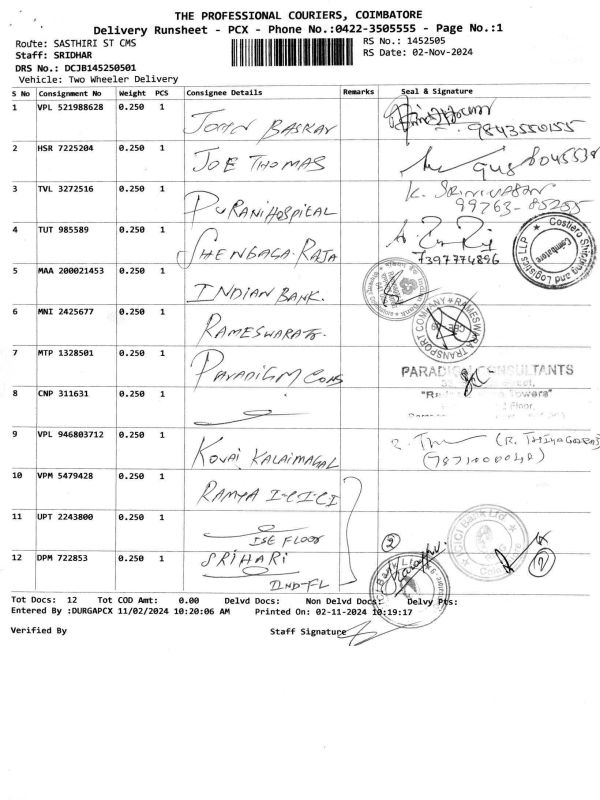 THE PROFESSIONAL COURIERS, COIMBATORE
Delivery Runsheet - PCX - Phone No.:0422-3505555 - Page No.:1
Route: SASTHIRI ST CMS
RS No.: 1452505
Staff: SRIDHAR
RS Date: 02-Nov-2024
DRS No.: DCJB145250501
Vehicle: Two Wheeler Delivery
S No Consignment No Weight PCS Consignee Details Remarks Seal & Signature
1 VPL 521988628 0.250 1 JOHN BASKAR
9843550155
2 HSR 7225204 0.250 1 JOE THOMAS
3 TVL 3272516 0.250 1 PURANI HOSPITAL K. SRINIVASAN
99763-85255
4 TUT 985589 0.250 1 SHENBAGA RAJA
7397774896
Costiero Shipping and Logistics LLP
Coimbatore
5 MAA 200021453 0.250 1 INDIAN BANK.
6 MNI 2425677 0.250 1 RAMESWARA
RAMESWARA TRANSPORT COMPANY
CBE
7 MTP 1328501 0.250 1 PARADIGM CONS
PARADIGM CONSULTANTS
Towers"
Floor,
8 CNP 311631 0.250 1
9 VPL 946803712 0.250 1 KOVAI KALAIMAGAL
10 VPM 5479428 0.250 1 RAMYA I-C-I-C-I
11 UPT 2243800 0.250 1 ISE FLOOR
ICICI Bank Ltd
12 DPM 722853 0.250 1 SRIHARI
IIND-FL
2
2
Tot Docs: 12 Tot COD Amt: 0.00 Delvd Docs: Non Delvd Docs: Delvy Pts:
Entered By :DURGAPCX 11/02/2024 10:20:06 AM Printed On: 02-11-2024 10:19:17
Verified By Staff Signature